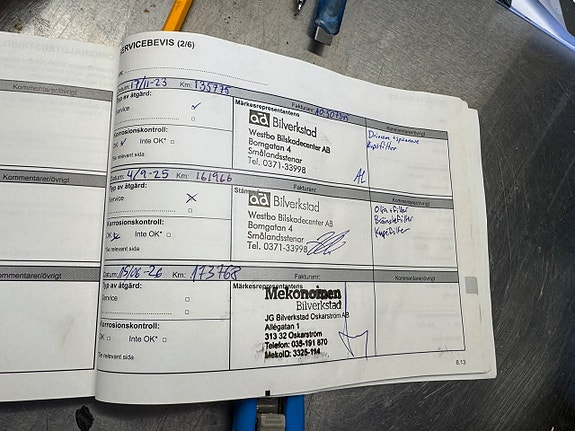 SERVICEBEVIS (2/6)
Datum: 17/11-23 Km: 135775 Fakturanr:
Typ av åtgärd: Märkesrepresentantens Kommentarer/övrigt
Service ✓
ad Bilverkstad
Westbo Bilskadecenter AB
Borngatan 4
Smålandsstenar
Tel. 0371-33998
Kupéfilter
Korrosionskontroll:
OK ✓ Inte OK* □
*Se relevant sida
Kommentarer/övrigt
Datum: 4/9-25 Km: 161966 Fakturanr: Kommentarer/övrigt
Typ av åtgärd:
Service X
ad Bilverkstad
Westbo Bilskadecenter AB
Borngatan 4
Smålandsstenar
Tel. 0371-33998
Olja + filter
Bränslefilter
Kupéfilter
Korrosionskontroll:
OK Inte OK* □
*Se relevant sida
Kommentarer/övrigt
Datum: 15/06-26 Km: 173768 Fakturanr: Kommentarer/övrigt
Typ av åtgärd: Märkesrepresentantens
Service □
Mekonomen
Bilverkstad
JG Bilverkstad Oskarström AB
Allégatan 1
313 32 Oskarström
Telefon: 035-191 870
MekoID: 3325-114
Korrosionskontroll:
OK □ Inte OK* □
*Se relevant sida
6.13